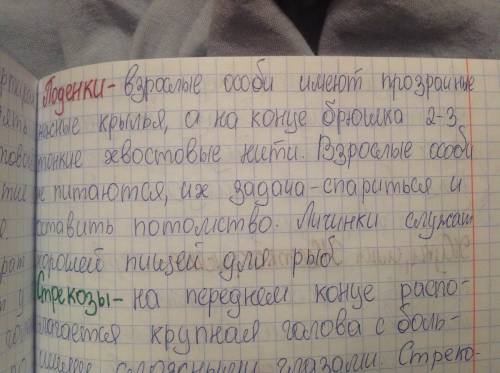 Поденки- взрослые особи имеют прозрачные
насные крылья, а на конце брюшка 2-3
тонкие хвостовые нити. Взрослые особи
не питаются, их задача-спариться и
оставить потомство. Личинки служат
хорошей пищей для рыб
Стрекозы- на переднем конце распо-
лагается крупная голова с боль-
глазами. Стреко-